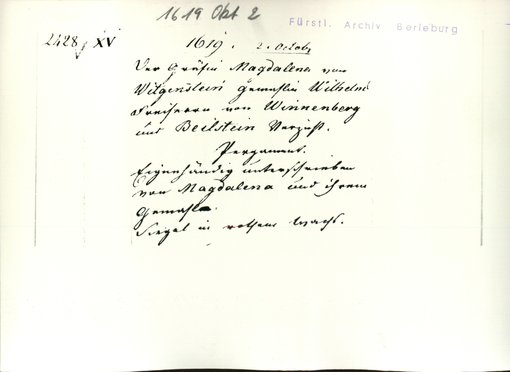 1619 Okt 2
Fürstl. Archiv Berleburg
2428, XV
1619. 2. Octobr
Der Gräfin Magdalena von
Witgenstein gemahlin Wilhelm
Freiherrn von Winnenberg
und Beilstein Verzicht.
Pergament.
Eigenhändig unterschrieben
von Magdalena und ihrem
Gemahle.
Siegel in rothem Wachs.